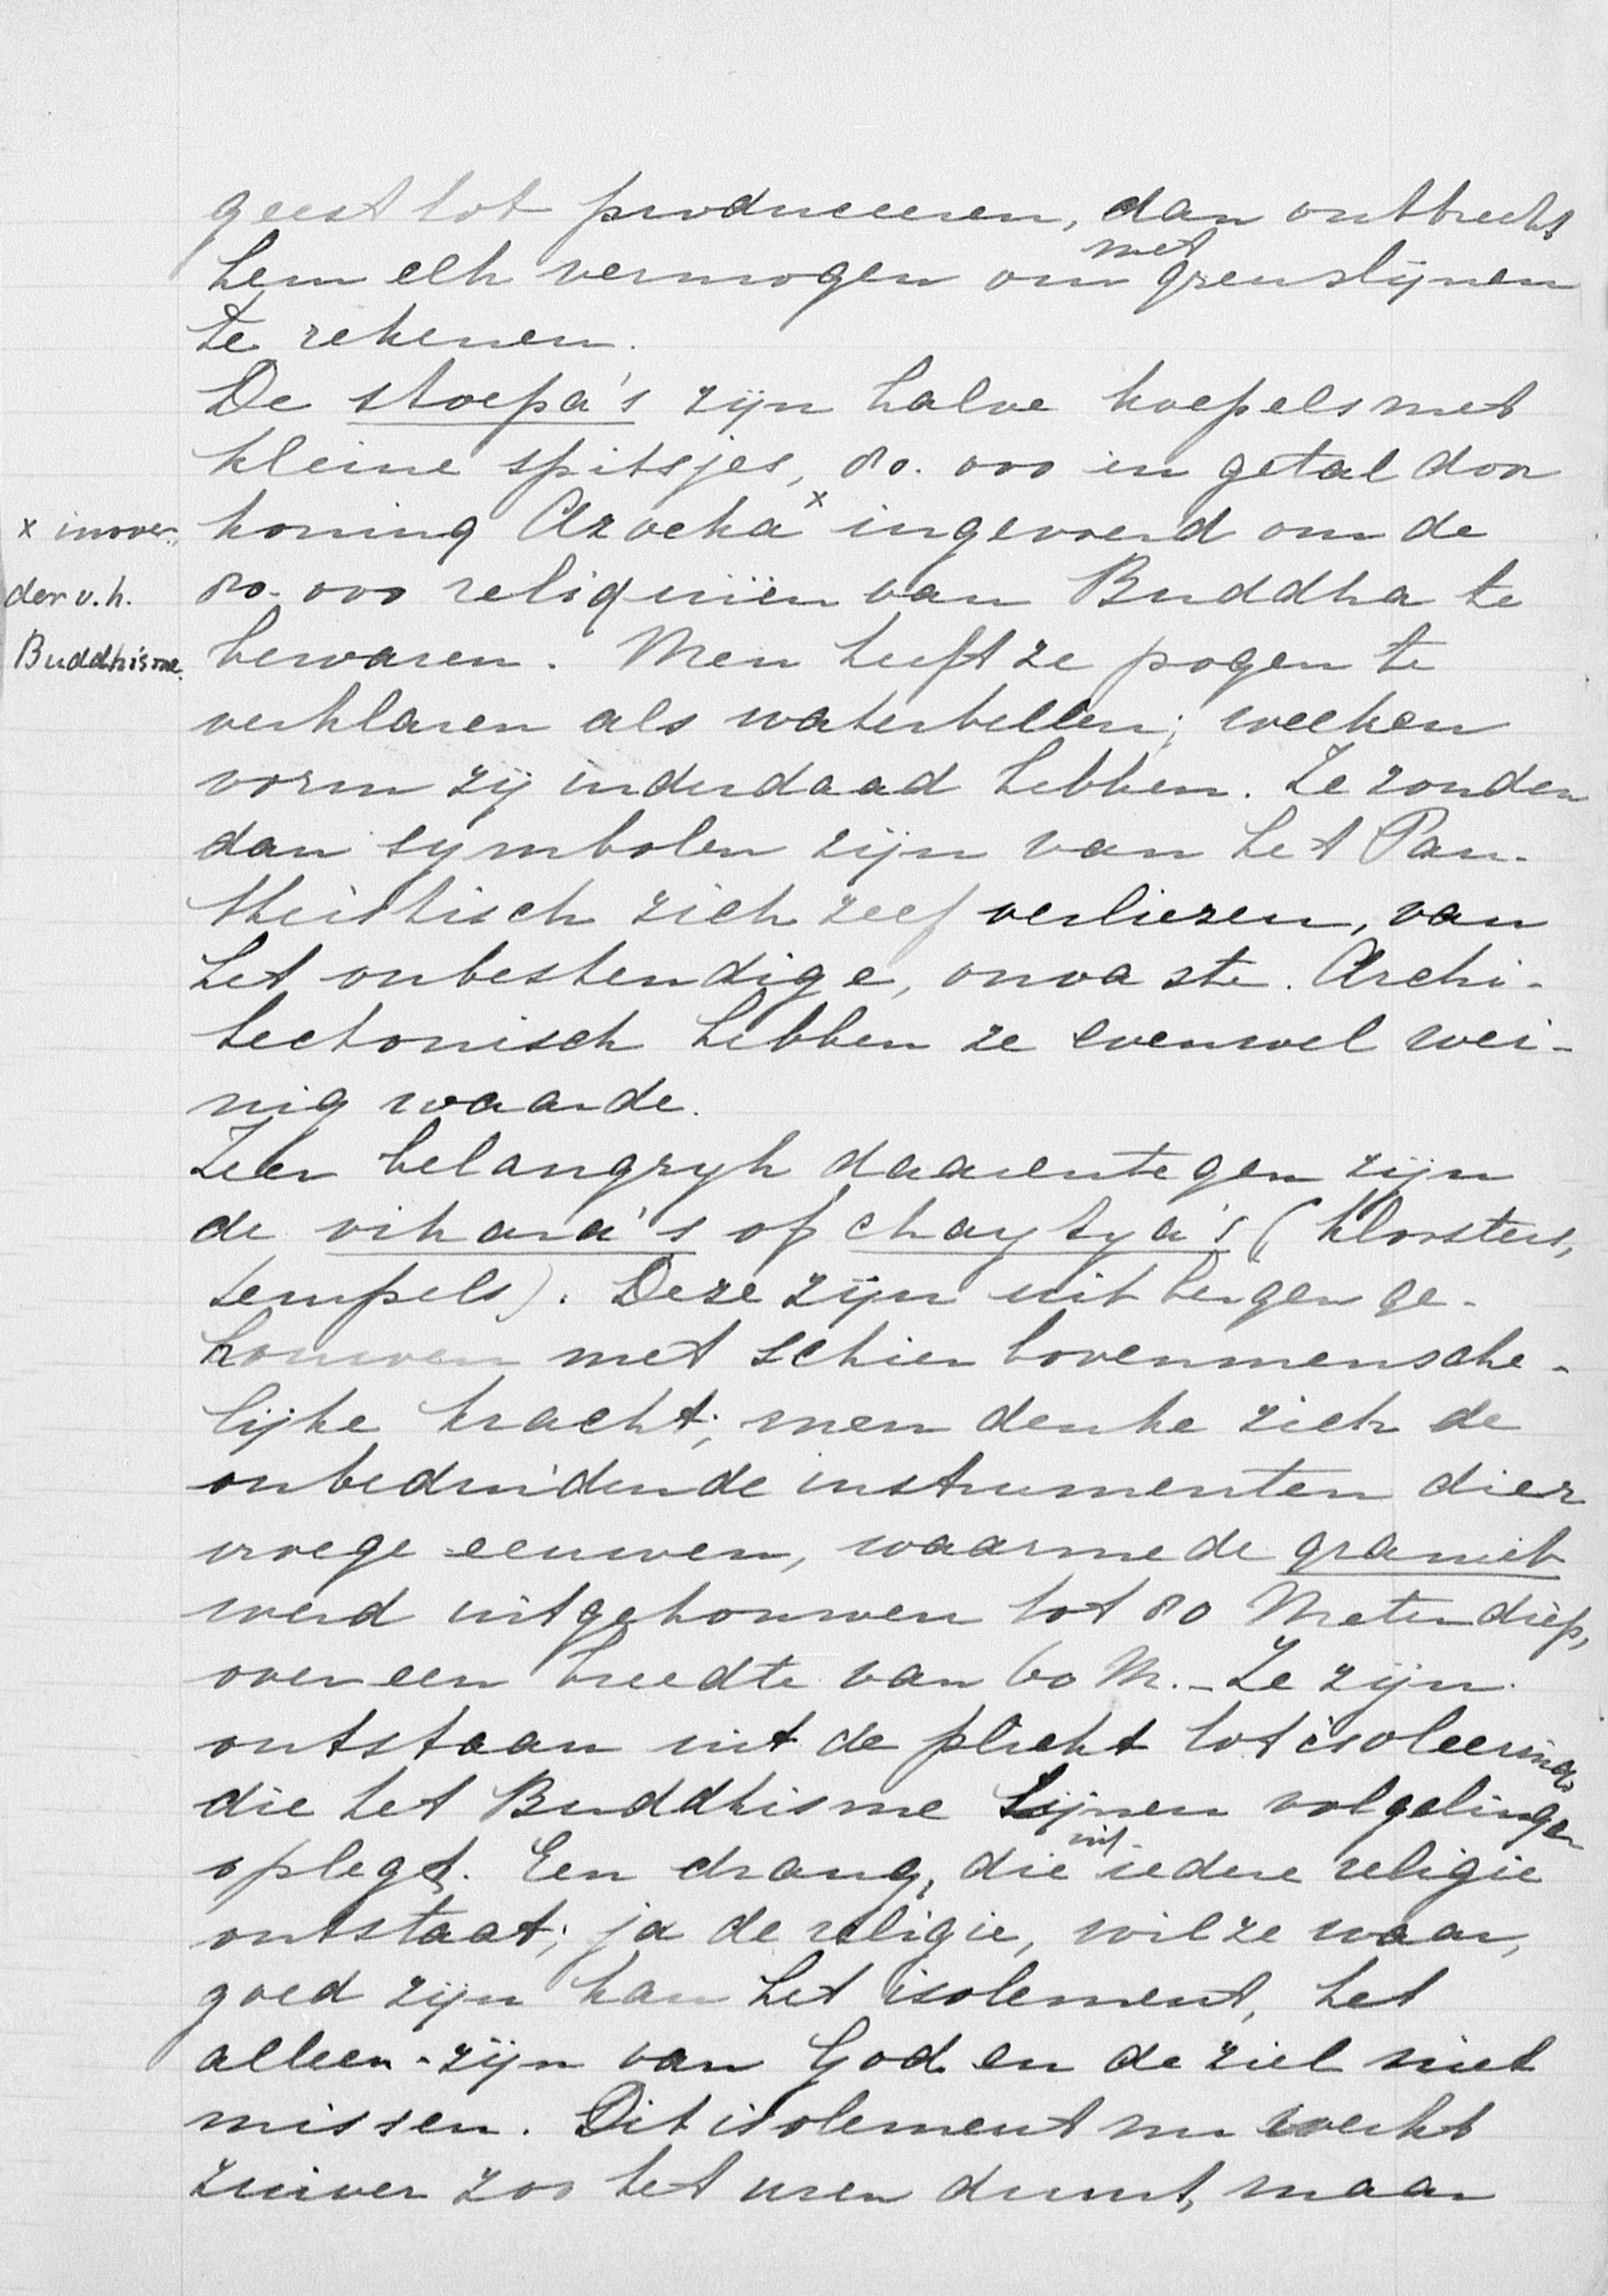 geest tot produceeren, dan ontbreekt
hem elk vermogen om met grenslijnen
te rekenen.
De stoepa's zijn halve koepels met
kleine spitsjes, 80.000 in getal door
koning Azocka x ingevoerd om de
x invoer-
der v. h.
Buddhisme.
80.000 reliquiën van Buddha te
bewaren. Men heeft ze pogen te
verklaren als waterbellen; welken
vorm zij inderdaad hebben. Ze zouden
dan symbolen zijn van het Pan-
theistisch zich zelf verliezen, van
het onbestendige, onvaste. Archi-
tectonisch hebben ze evenwel wei-
nig waarde.
Zeer belangryk daarentegen zijn
de vihara's of chaytya's (kloosters,
tempels). Deze zijn uit bergen ge-
houwen met schier bovenmensche-
lijke kracht; men denke zich de
onbeduidende instrumenten dier
vroege eeuwen, waarmede graniet
werd uitgehouwen tot 80 Meter diep,
over een breedte van 60 M. - Ze zijn
ontstaan uit de plicht tot isoleering,
die het Buddhisme zijnen volgelingen
oplegt. Een drang, die uit iedere religie
ontstaat; ja de religie, wil ze waar,
goed zijn kan het isolement, het
alleen-zijn van God en de ziel niet
missen. Dit isolement nu werkt
zuiver zoo het uren duurt, maar